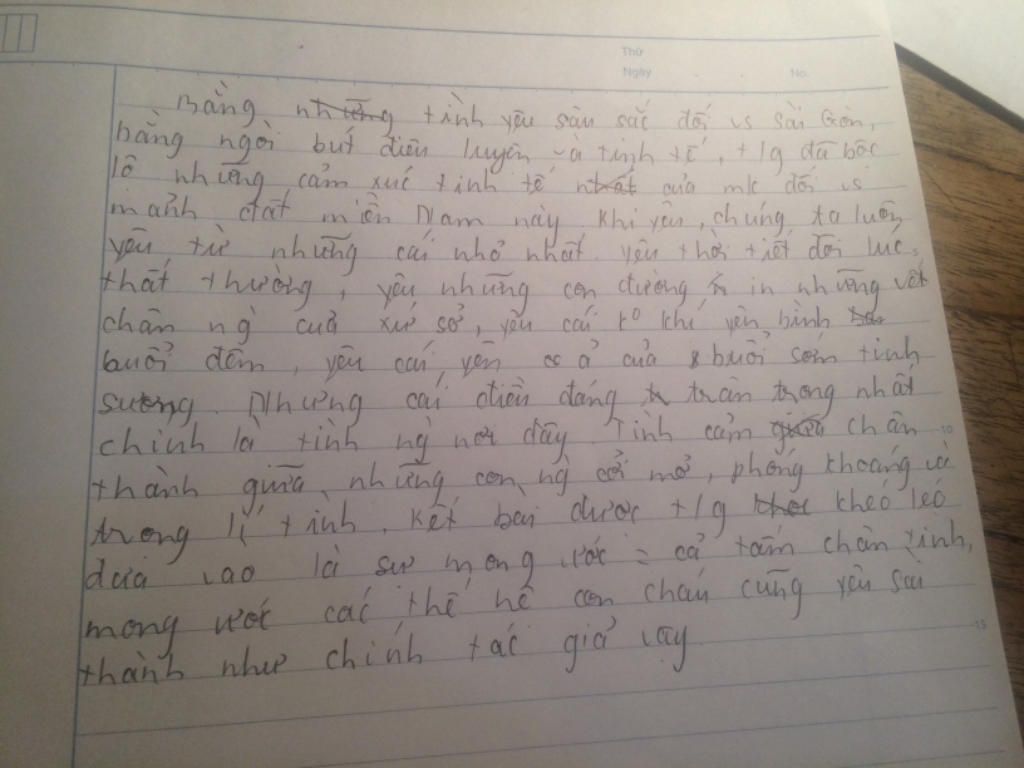 Thứ
Ngày No.
Bằng những tình yêu sâu sắc đối vs Sài Gòn,
bằng ngòi bút điêu luyện và tinh tế, t/g đã bộc
lộ những cảm xúc tinh tế nhất của mk đối vs
mảnh đất miền Nam này. Khi yêu, chúng ta luôn
yêu từ những cái nhỏ nhất. yêu thời tiết đôi lúc
thất thường, yêu những con đường in những vết
chân ng` của xứ sở, yêu cái ko khí yên bình
buổi đêm, yêu cái yên ả của buổi sớm tinh
sương. Nhưng cái điều đáng trân trọng nhất
chính là tình ng` nơi đây. Tình cảm giữa chân
thành giữa những con ng` cởi mở, phóng khoáng và
trọng lí tình. Kết bài được t/g khéo léo
đưa vào là sự mong ước = cả tấm chân tình,
mong ước các thế hệ con cháu cũng yêu Sài
thành như chính tác giả vậy
10
15